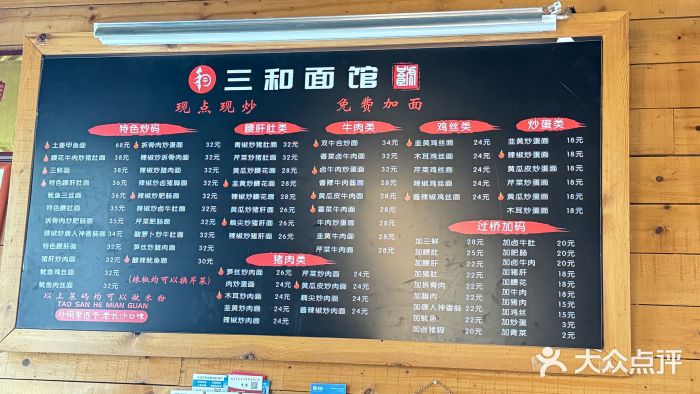 三和面馆
现点现炒 免费加面
特色炒码
土豪甲鱼面 68元
腰花牛肉炒猪肚面 38元
三鲜面 38元
特色腰肝肚面 36元
鱿鱼三丝面 36元
特色腰肚面 35元
拆骨肉炒肥肠面 35元
辣椒炒唐人神香肠面 34元
特色腰肝面 33元
猪肝炒肉面 32元
鱿鱼鸡丝面 32元
鱿鱼肉丝面 32元
拆骨肉炒蛋面 32元
辣椒炒拆骨肉面 32元
辣椒炒腊肉面 32元
辣椒炒卤猪脚面 32元
辣椒炒肥肠面 32元
辣椒炒卤牛肚面 32元
芹菜肥肠面 32元
酸萝卜炒牛肚面 32元
笋丝炒腊肉面 32元
酸辣鱿鱼面 30元
(辣椒均可以换芹菜)
以上菜码均可以做米粉
TAO SAN HE MIAN GUAN
腰肝肚类
青椒炒猪肚面 32元
芹菜炒猪肚面 32元
黄瓜炒腰花面 28元
韭黄炒腰花面 28元
辣椒炒腰花面 28元
黄瓜炒猪肝面 26元
藕尖炒猪肝面 26元
辣椒炒猪肝面 26元
猪肉类
笋丝肉面 26元
肉炒蛋面 24元
木耳炒肉面 24元
韭黄炒肉面 24元
辣椒炒肉面 24元
芹菜炒肉面 24元
黄瓜皮炒肉面 24元
藕尖肉面 24元
酱辣椒炒肉面 24元
牛肉类
双牛合炒面 34元
香菜卤牛肉面 32元
卤牛肉炒蛋面 32元
香辣牛肉酱面 28元
黄瓜皮牛肉面 28元
香菜牛肉面 28元
牛肉炒蛋面 28元
韭黄牛肉面 28元
芹菜牛肉面 28元
鸡丝类
韭黄鸡丝面 24元
木耳鸡丝面 24元
芹菜鸡丝面 24元
辣椒鸡丝面 24元
酱辣椒鸡丝面 24元
炒蛋类
韭黄炒蛋面 18元
辣椒炒蛋面 18元
黄瓜皮炒蛋面 18元
芹菜炒蛋面 18元
黄瓜炒蛋面 18元
木耳炒蛋面 18元
过桥加码
加三鲜 28元
加腰肚 25元
加腰肝 22元
加猪肚 22元
加拆骨肉 22元
加腊肉 22元
加唐人神香肠 22元
加鱿鱼 22元
加卤猪脚 20元
加卤牛肚 20元
加肥肠 20元
加卤牛肉 20元
加猪肝 18元
加牛肉 18元
加猪肉 15元
加鸡丝 15元
加炒蛋 3元
加青菜 2元
大众点评